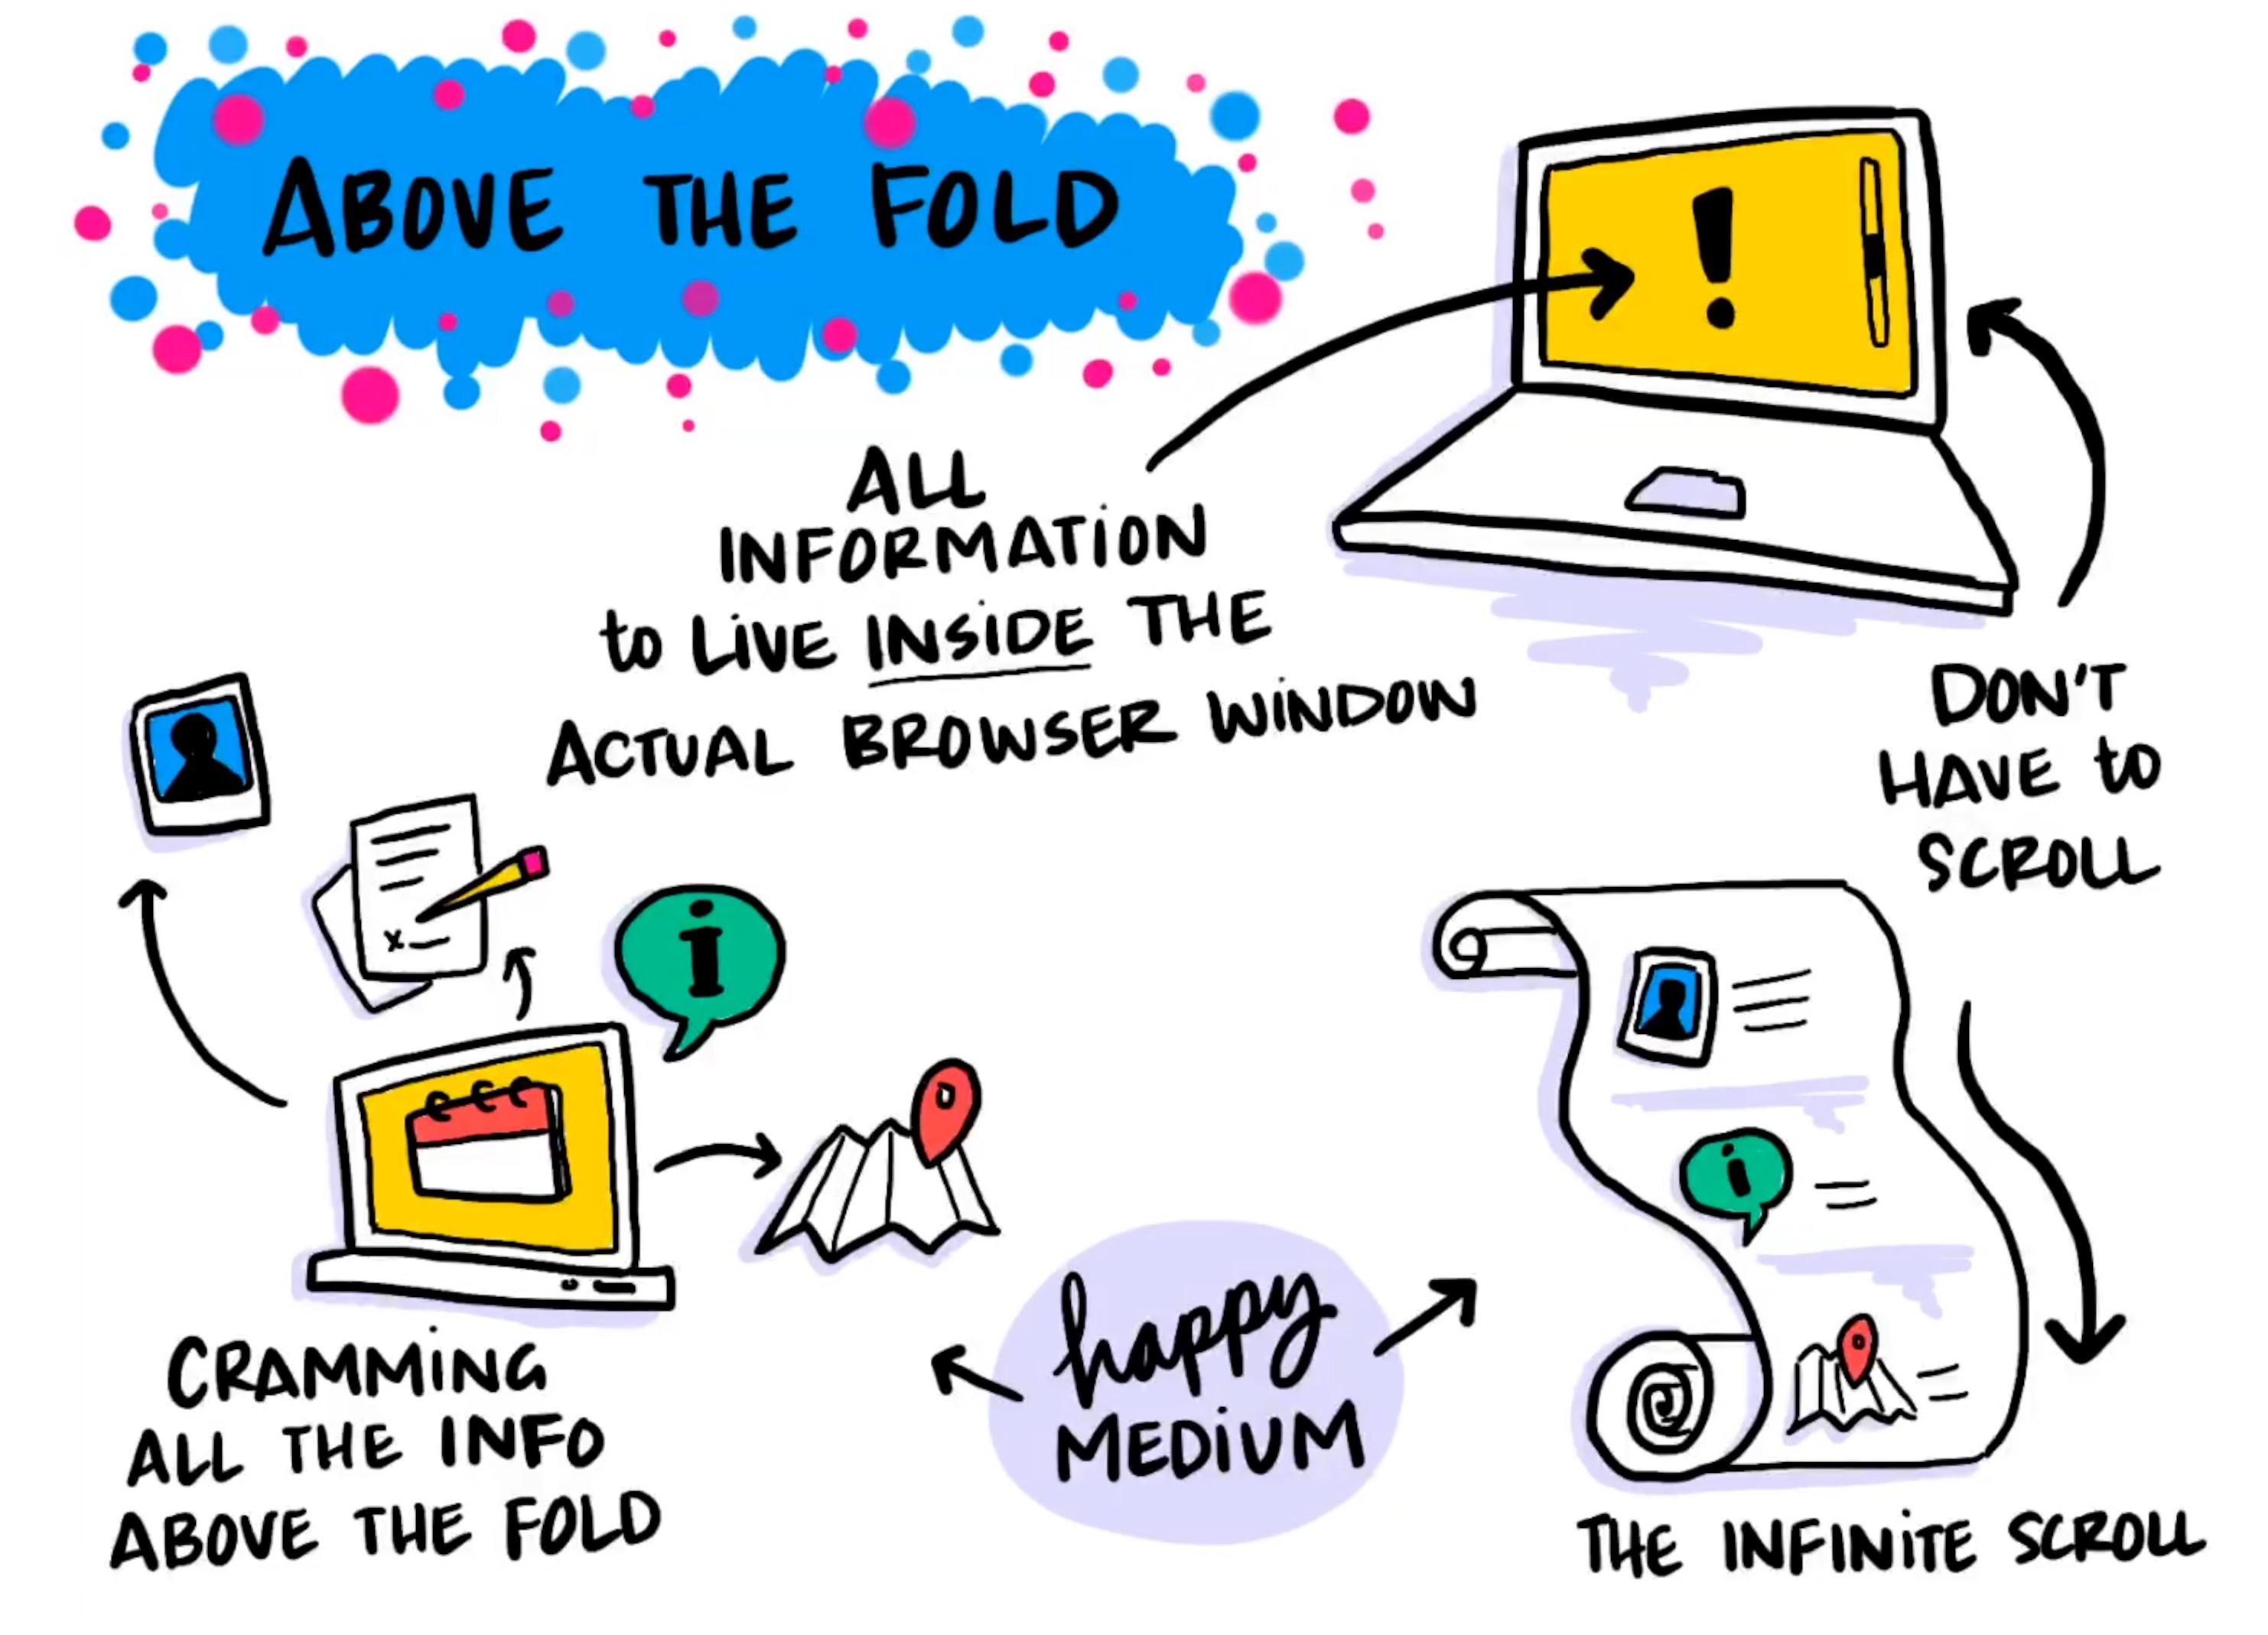 ABOVE THE FOLD
!
ALL
INFORMATION
to LIVE INSIDE THE
ACTUAL BROWSER WINDOW
DON'T
HAVE to
SCROLL
x
i
CRAMMING
ALL THE INFO
ABOVE THE FOLD
happy
MEDIUM
i
THE INFINITE SCROLL